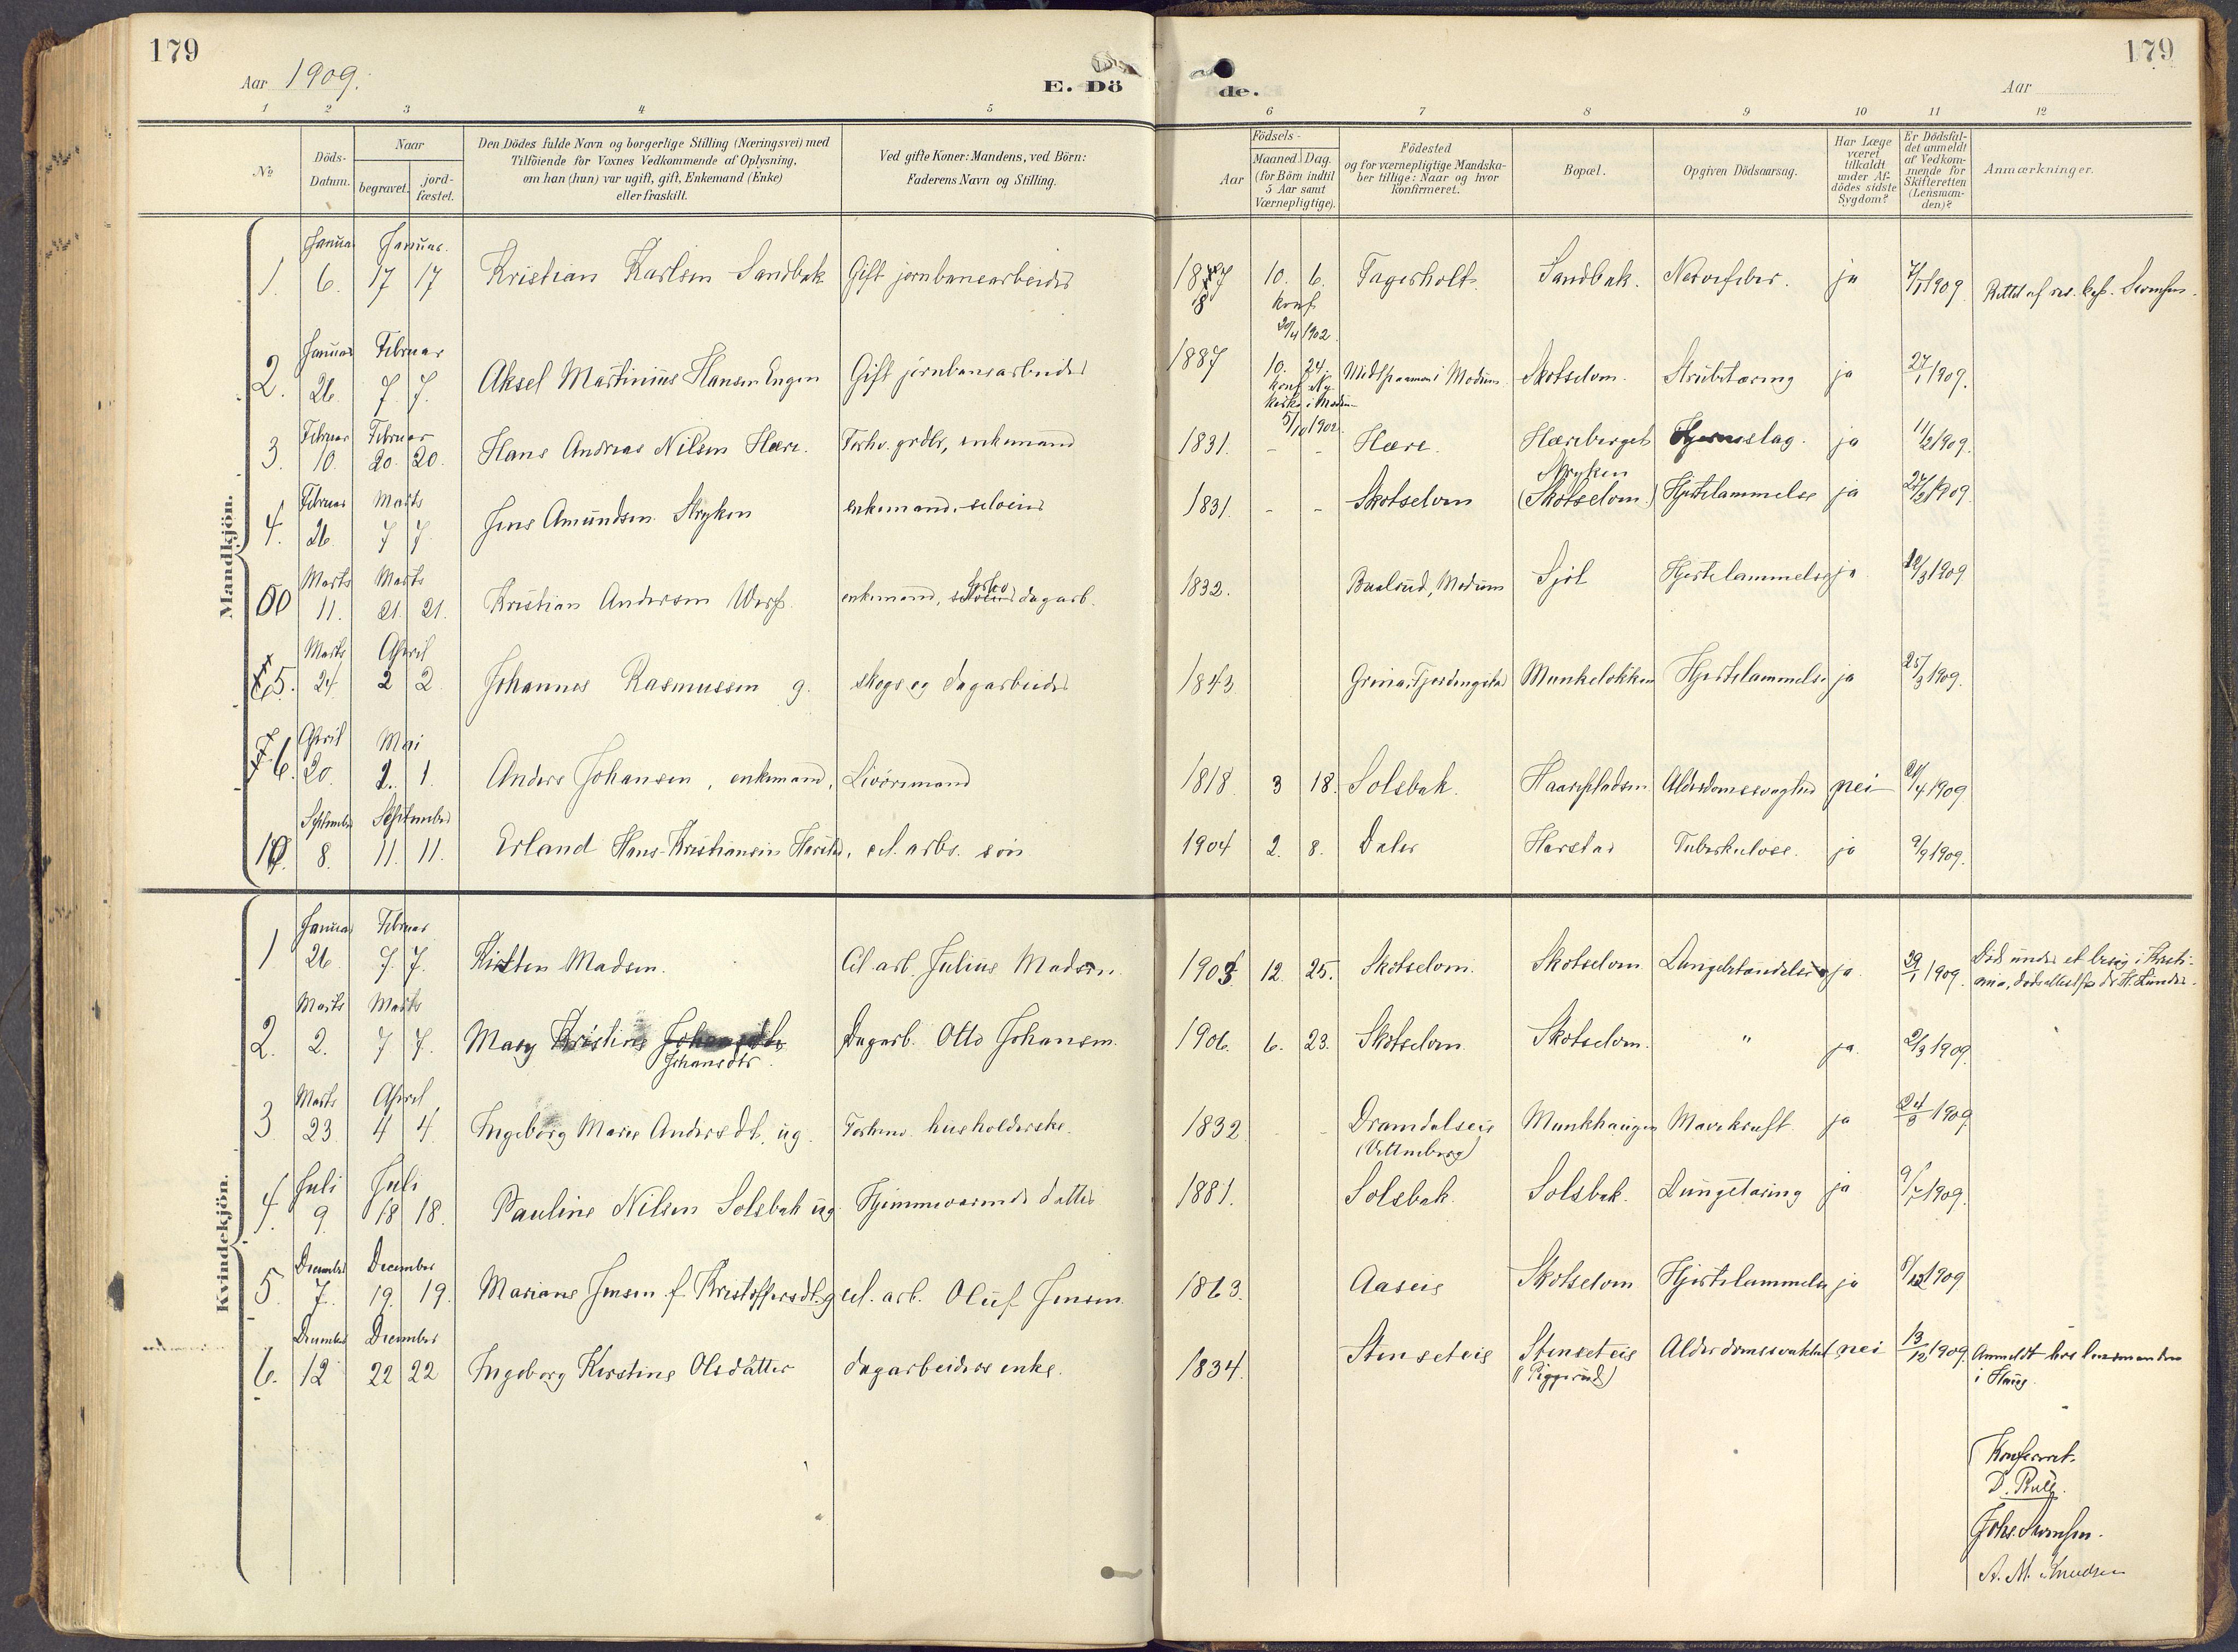 179
179
Aar 1909.
E. Dö
de.
Aar
1 2 3 4 5 6 7 8 9 10 11 12
№
Döds-
Datum.
Naar
begravet.
jord-
fæstet.
Den Dödes fulde Navn og borgerlige Stilling (Næringsvei) med
Tilföiende for Voxnes Vedkommende af Oplysning,
om han (hun) var ugift, gift, Enkemand (Enke)
eller fraskilt.
Ved gifte Koner: Mandens, ved Börn:
Faderens Navn og Stilling.
Födsels-
Aar
Maaned. Dag.
(for Börn indtil
5 Aar samt
Værnepligtige).
Födested
og for værnepligtige Mandska-
ber tillige: Naar og hvor
konfirmeret.
Bopæl.
Opgiven Dödsaarsag.
Har Læge
været
tilkaldt
under Af-
dödes sidste
Sygdom?
Er Dödsfal-
det anmeldt
af Vedkom-
mende for
Skifteretten
(Lensman-
den)?
Anmærkninger.
Mandkjön.
Januar Januar.
1. 6. 17 17 Kristian Karlsen Sandbak Gift jernbanearbeider 1887 10. 6. Fagerholt. Sandbak. Nervefeber. ja 7/1 1909 Rettet af res. kap.
konf.
20/4 1902.
Januar Februar
2. 26. 7. 7. Aksel Martinius Hansen Engen Gift jernbanearbeider 1887 10. 24. i Modum. Skotselven. Strubetæring ja 27/1 1909.
konf. Ny-
kirke i Modum
5/10 1902.
Februar Februar
3. 10. 20. 20. Hans Andreas Nilsen Hære. Forhv. grdbr, enkemand 1831. - - Hære. Hæreberget Hjerneslag. ja 11/2 1909.
Februar Marts
4. 26. 7 7. Jens Amundsen Stryken enkemand, selveier 1831. - - Skotselven Stryken
(Skotselven) Hjertelammelse ja 27/2 1909
Marts Marts
11. 21. 21. Kristian Andersen Werp. enkemand, forhv. dagarb. 1832. Modum Sjøl Hjertelammelse ja 12/3 1909
Marts April
5. 24. 2 2. Johannes Rasmussen g. skogs og dagarbeider 1843 Munkeløkken Hjertelammelse ja 25/3 1909.
April Mai
6. 20. 1. 1. Anders Johansen, enkemand, Livöresmand 1818. 3 18. Solsbak. Haarepladsen. nei 21/4 1909
September September
8. 11. 11. Erland Hans Kristiansen Harstad, cel. arbs. søn 1904 2. 8. Daler Harstad Tuberkulose. ja 9/9 1909.
Kvindekjön.
Januar Februar
1 26. 7. 7. Kirsten Madsen. Cel. arb. Julius Madsen. 1903. 12. 25. Skotselven. Skotselven Lungebetændelse ja 29/1 1909. Död under et besög i Kristi-
ania, dødsattest fra dr. H. Lunder.
Marts Marts
2. 2. 7 7. Mary Kristine Johansdtr Dagarb. Otto Johansen. 1906. 6. 23. Skotselven. Skotselven. " ja. 2/3 1909.
Johansdtr.
Marts April
3. 23. 4 4. Ingeborg Marie Andersdt. ug. Forhenv. husholderske. 1832. - - Dramdalseie Munkhaugen Mavekræft. ja 24/3 1909
Juli Juli
4. 9. 18 18. Pauline Nilsen Solsbak ug. Hjemmeværende datter 1881. Solsbak. Solsbak. Lungetæring ja 9/7 1909.
December December
5. 7. 19. 19. Mariane Jensen f. Kristoffersdt. g cel. arb. Oluf Jensen. 1863. Aaseie Skotselven Hjertelammelse ja 8/12 1909
December December
6. 12 22 22 Ingeborg Kirstine Olsdatter dagarbeiders enke. 1834. Stenseteie Stenseteie Alderdomssvakhet nei 13/12 1909. Anmeldt hos lensmanden
i Haug.
Konfereret.
D. Rull.
A. M. Knudsen